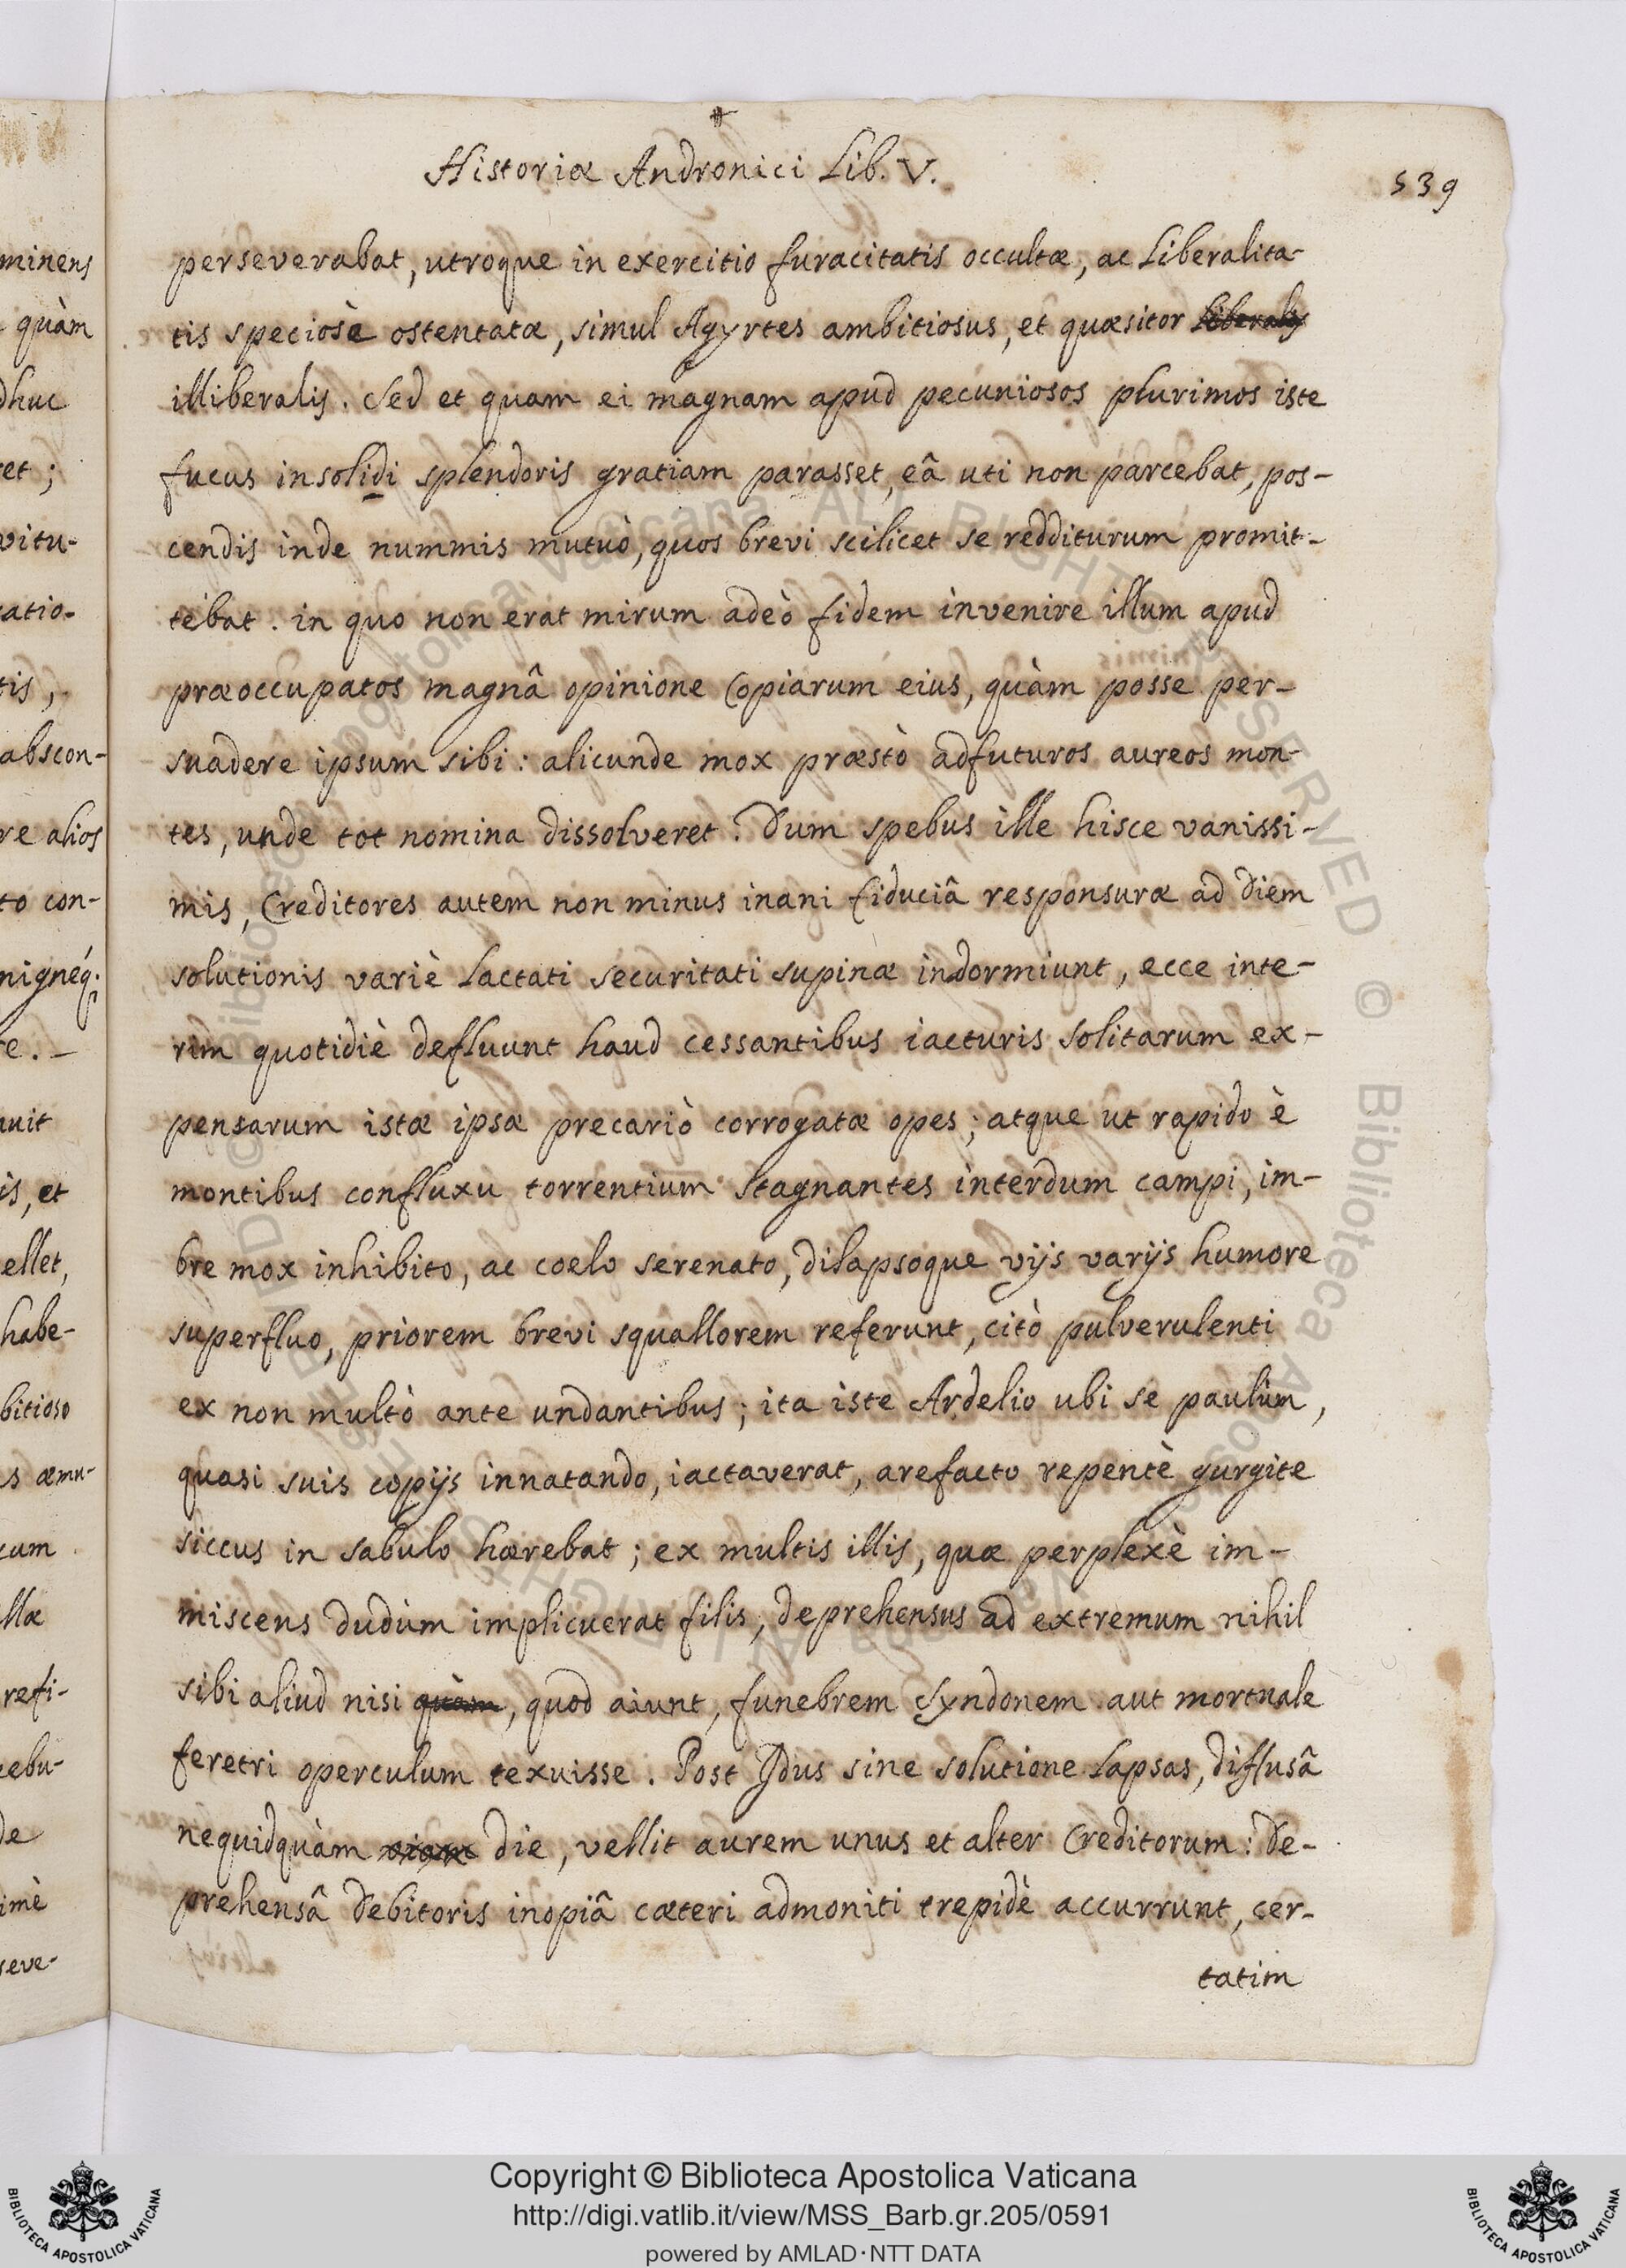 Historiæ Andronici Lib. V.
539
perseverabat, utroque in exercitio furacitatis occultæ, ac Liberalita-
tis speciosè ostentatæ, simul Agyrtes ambitiosus, et quæsitor Liberalis
illiberalis. Sed et quam ei magnam apud pecuniosos plurimos iste
fucus insolidi splendoris gratiam parasset, eâ uti non parcebat, pos-
cendis inde nummis mutuò, quos brevi scilicet se redditurum promit-
tebat. in quo non erat mirum adeò fidem invenire illum apud
præoccupatos magnâ opinione Copiarum eius, quàm posse per-
suadere ipsum sibi: alicunde mox præstò adfuturos aureos mon-
tes, unde tot nomina dissolveret. Dum spebus ille hisce vanissi-
mis, Creditores autem non minus inani fiduciâ responsuræ ad diem
solutionis variè Lactati securitati supinæ indormiunt, ecce inte-
rim quotidiè defluunt haud cessantibus iacturis solitarum ex-
pensarum istæ ipsæ precariò corrogatæ opes; atque ut rapido è
montibus confluxu torrentium stagnantes interdum campi, im-
bre mox inhibito, ac coelo serenato, dilapsoque vijs varijs humore
superfluo, priorem brevi squallorem referunt, citò pulverulenti
ex non multò ante undantibus; ita iste Ardelio ubi se paulùm,
quasi suis copijs innatando, iactaverat, arefacto repentè gurgite
siccus in sabulo hærebat; ex multis illis, quæ perplexè im-
miscens dudùm implicuerat filis, deprehensus ad extremum nihil
sibi aliud nisi quàm, quod aiunt, funebrem Syndonem aut mortuale
feretri operculum texuisse. Post Idus sine solutione Lapsas, diffusâ
nequidquàm die, vellit aurem unus et alter Creditorum: De-
prehensâ debitoris inopiâ cæteri admoniti trepidè accurrunt, cer-
tatim
minens
quàm
dhuc
et;
vitu-
ratio-
tis,
abscon-
re alios
to con-
nignéq;
e.
uit
is, et
ellet,
habe-
bitioso
s æmu-
cum
llæ
refi-
cebu-
de
imè
seve-
© Biblioteca Apostolica Vaticana ALL RIGHTS RESERVED
© Biblioteca Apostolica Vaticana ALL RIGHTS RESERVED
Copyright © Biblioteca Apostolica Vaticana
http://digi.vatlib.it/view/MSS_Barb.gr.205/0591
powered by AMLAD·NTT DATA
BIBLIOTECA APOSTOLICA VATICANA
BIBLIOTECA APOSTOLICA VATICANA